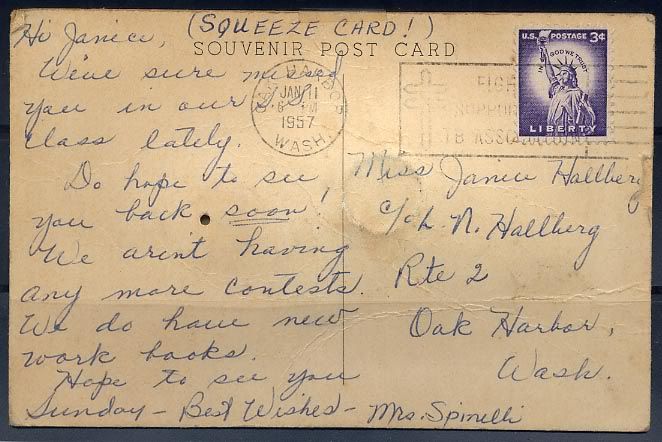 (SQUEEZE CARD!)
SOUVENIR POST CARD
Hi Janice,
We've sure missed
you in our S.S.
class lately.
Do hope to see
you back soon!
We arin't having
any more contests.
We do have new
work books.
Hope to see you
Sunday - Best Wishes - Mrs. Spinelli
OAK HARBOR
JAN 11
6 PM
1957
WASH.
U.S. POSTAGE 3¢
IN GOD WE TRUST
LIBERTY
FIGHT
SUPPORT
TB ASSOCIATION
Miss Janice Hallberg
c/o L. N. Hallberg
Rte 2
Oak Harbor,
Wash.